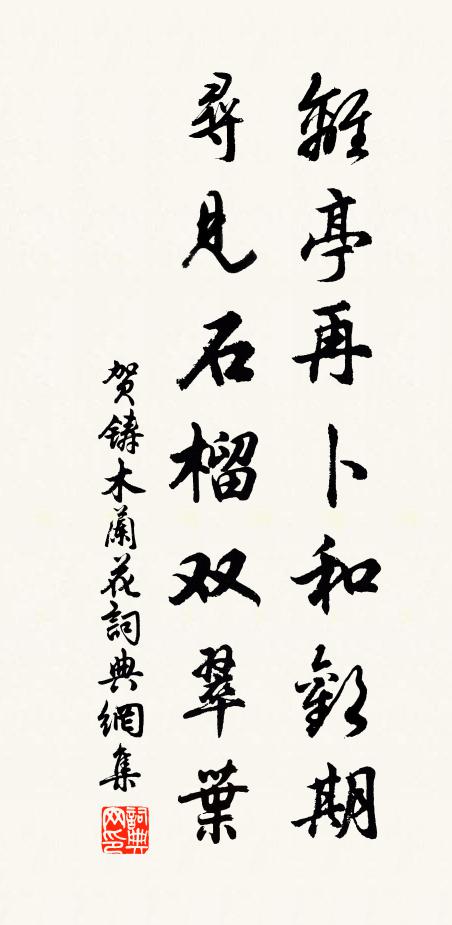 離亭再卜和歡期
尋見石榴双翠葉
贺鑄木蘭花詞典網集
詞典网印